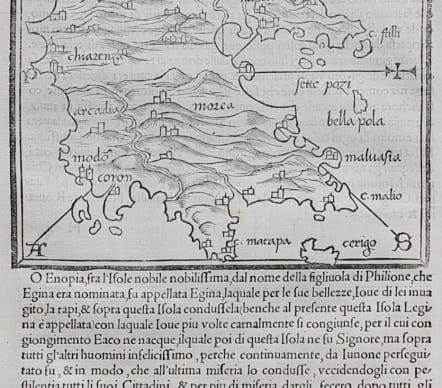 c. stilli
chiarenza
sette pozi
arcadia
morea
bella pola
modō
malvasia
coron
c. malio
c. matapa
cerigo
A
S
O Enopia, fra l'Isole nobile nobilissima, dal nome della figliuola di Philione, che
Egina era nominata, fu appellata Egina, laquale per le sue bellezze, Ioue di lei inua
gito, la rapi, & sopra questa Isola condussela (benche al presente questa Isola Legi
na è appellata) con laquale Ioue piu volte carnalmente si congiunse, per il cui con
giongimento Eaco ne nacque, ilquale poi di questa Isola ne fu Signore, ma sopra
tutti gl'altri huomini infelicissimo, perche continuamente, da Iunone perseguí
tato fu, & in modo, che all'ultima miseria lo condusse, vccidendogli con pe
stilentia tutti li suoi Cittadini, & per piu di miseria daroli, secero, dopo tutti, gl